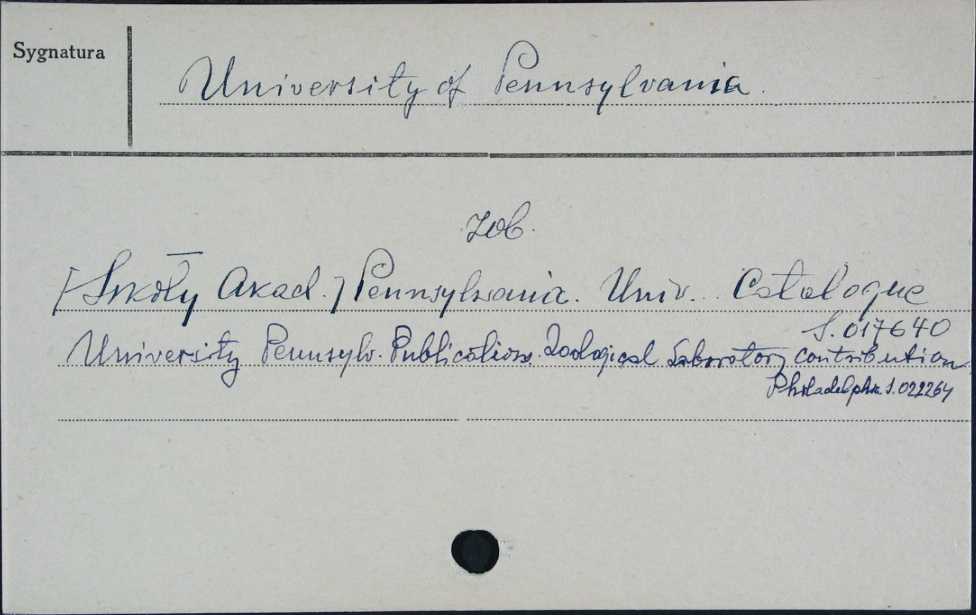 Sygnatura
University of Pennsylvania.
Zob.
[Szkoły Akad.] Pennsylvania. Univ. Catalogue
S.017640
University Pennsylv. Publications. Zoological Laboratory contribution.
Philadelphia S.022264